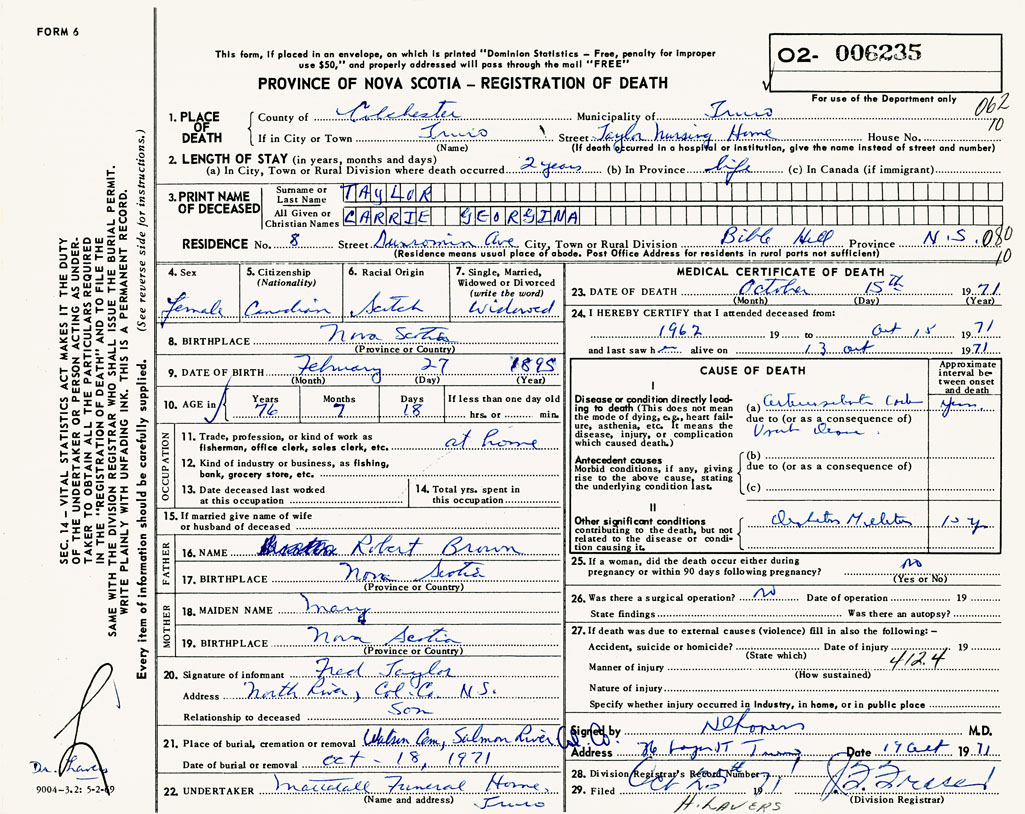 FORM 6
This form, if placed in an envelope, on which is printed "Dominion Statistics – Free, penalty for improper
use $50," and properly addressed will pass through the mail "FREE"
02- 006235
PROVINCE OF NOVA SCOTIA – REGISTRATION OF DEATH
For use of the Department only
062
10
1. PLACE OF DEATH
County of Colchester Municipality of Truro
If in City or Town Truro Street Taylor Nursing Home House No.
(Name) (If death occurred in a hospital or institution, give the name instead of street and number)
2. LENGTH OF STAY (in years, months and days)
(a) In City, Town or Rural Division where death occurred 2 years (b) In Province life (c) In Canada (if immigrant)
3. PRINT NAME OF DECEASED
Surname or Last Name TAYLOR
All Given or Christian Names CARRIE GEORGINA
RESIDENCE No. 8 Street Dunromin Ave City, Town or Rural Division Bible Hill Province N.S. 080
(Residence means usual place of abode. Post Office Address for residents in rural parts not sufficient) 10
4. Sex
Female
5. Citizenship
(Nationality)
Canadian
6. Racial Origin
Scotch
7. Single, Married,
Widowed or Divorced
(write the word)
Widowed
8. BIRTHPLACE Nova Scotia
(Province or Country)
9. DATE OF BIRTH February 27 1895
(Month) (Day) (Year)
10. AGE in Years 76 Months 7 Days 18 If less than one day old
hrs. or min.
OCCUPATION
11. Trade, profession, or kind of work as
fisherman, office clerk, sales clerk, etc. at home
12. Kind of industry or business, as fishing,
bank, grocery store, etc.
13. Date deceased last worked
at this occupation
14. Total yrs. spent in
this occupation
15. If married give name of wife
or husband of deceased
FATHER
16. NAME Robert Brown
17. BIRTHPLACE Nova Scotia
(Province or Country)
MOTHER
18. MAIDEN NAME Mary
19. BIRTHPLACE Nova Scotia
(Province or Country)
20. Signature of informant Fred Taylor
Address North River, Col. Co. N.S.
Relationship to deceased Son
21. Place of burial, cremation or removal Watson Cem, Salmon River Col. Co.
Date of burial or removal Oct - 18, 1971
22. UNDERTAKER Mattatall Funeral Home,
(Name and address) Truro
MEDICAL CERTIFICATE OF DEATH
23. DATE OF DEATH October 15th 1971
(Month) (Day) (Year)
24. I HEREBY CERTIFY that I attended deceased from:
1962 19 to Oct 15 1971
and last saw h alive on 13 Oct 1971
CAUSE OF DEATH
Approximate
interval be-
tween onset
and death
I
Disease or condition directly lead-
ing to death (This does not
mean the mode of dying, e.g., heart fail-
ure, asthenia, etc. It means the
disease, injury, or complication
which caused death.)
(a)
due to (or as a consequence of)
Antecedent causes
Morbid conditions, if any, giving
rise to the above cause, stating
the underlying condition last.
(b)
due to (or as a consequence of)
(c)
II
Other significant conditions
contributing to the death, but not
related to the disease or condi-
tion causing it.
10 y
25. If a woman, did the death occur either during
pregnancy or within 90 days following pregnancy? no
(Yes or No)
26. Was there a surgical operation? no Date of operation 19
State findings Was there an autopsy?
27. If death was due to external causes (violence) fill in also the following:–
Accident, suicide or homicide? Date of injury 19
(State which) 412.4
Manner of injury
(How sustained)
Nature of injury
Specify whether injury occurred in industry, in home, or in public place
Signed by M.D.
Address Truro Date 19 Oct 1971
28. Division Registrar's Record Number
29. Filed Oct 1971
(Division Registrar)
H. LAVERS
SEC. 14 – VITAL STATISTICS ACT MAKES IT THE DUTY
OF THE UNDERTAKER OR PERSON ACTING AS UNDER-
TAKER TO OBTAIN ALL THE PARTICULARS REQUIRED
IN THE "REGISTRATION OF DEATH" AND TO FILE THE
SAME WITH THE DIVISION REGISTRAR WHO SHALL ISSUE THE BURIAL PERMIT.
WRITE PLAINLY WITH UNFADING INK. THIS IS A PERMANENT RECORD.
Every item of information should be carefully supplied. (See reverse side for instructions.)
Dr. Lavers
9004-3.2: 5-2-69